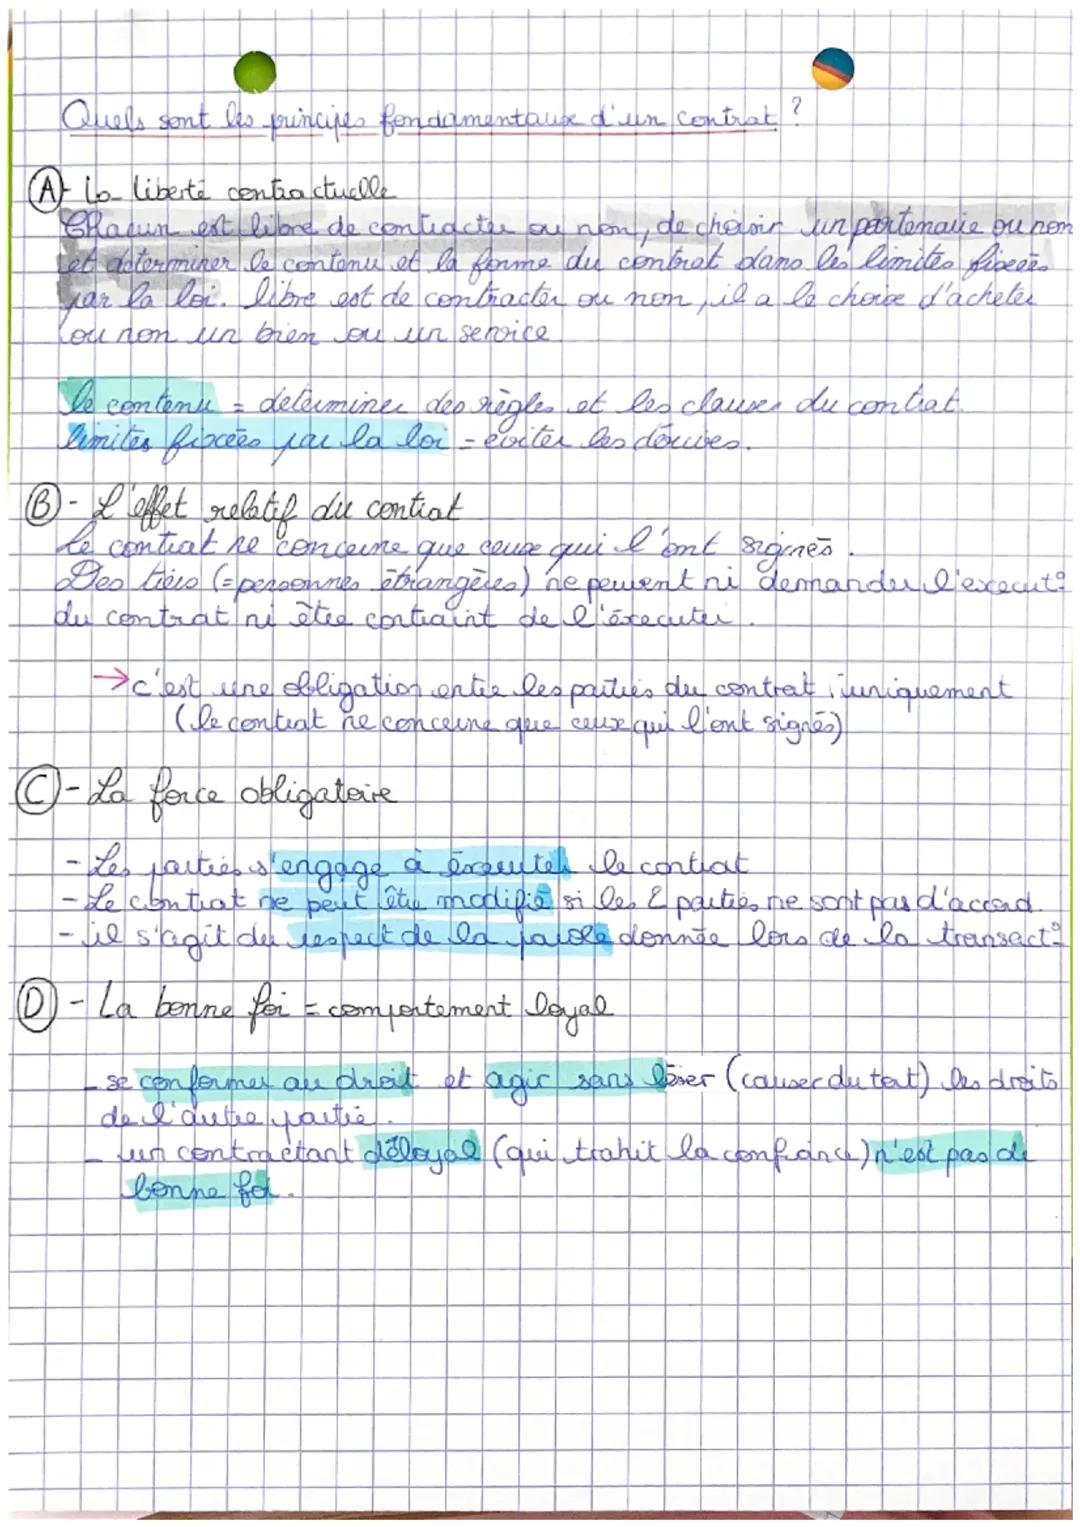 Quels sont les principes fondamentaux d'un contrat ?
A - La liberté contractuelle
Chacun est libre de contracter ou non, de choisir un partenaire ou non
et determiner le contenu et la forme du contrat dans les limites fixées
par la loi. libre est de contracter ou non, il a le choix d'acheter
ou non un bien ou un service
le contenu = determiner des règles et les clauses du contrat.
limites fixées par la loi = éviter les dérives.
B - L'effet relatif du contrat
Le contrat ne concerne que ceux qui l'ont signés.
Des tiers (= personnes étrangères) ne peuvent ni demander l'execut°
du contrat ni être contraint de l'éxecuter.
→ c'est une obligation entre les parties du contrat, uniquement
(le contrat ne concerne que ceux qui l'ont signés)
C - La force obligatoire
- Les parties s'engage à éxecuter le contrat
- Le contrat ne peut être modifié si les 2 parties ne sont pas d'accord.
- il s'agit du respect de la parole donnée lors de la transact°
D - La bonne foi = comportement loyal
- se conformer au droit et agir sans léser (causer du tort) les droits
de l'autre partie.
- un contractant déloyal (qui trahit la confiance) n'est pas de
bonne foi.